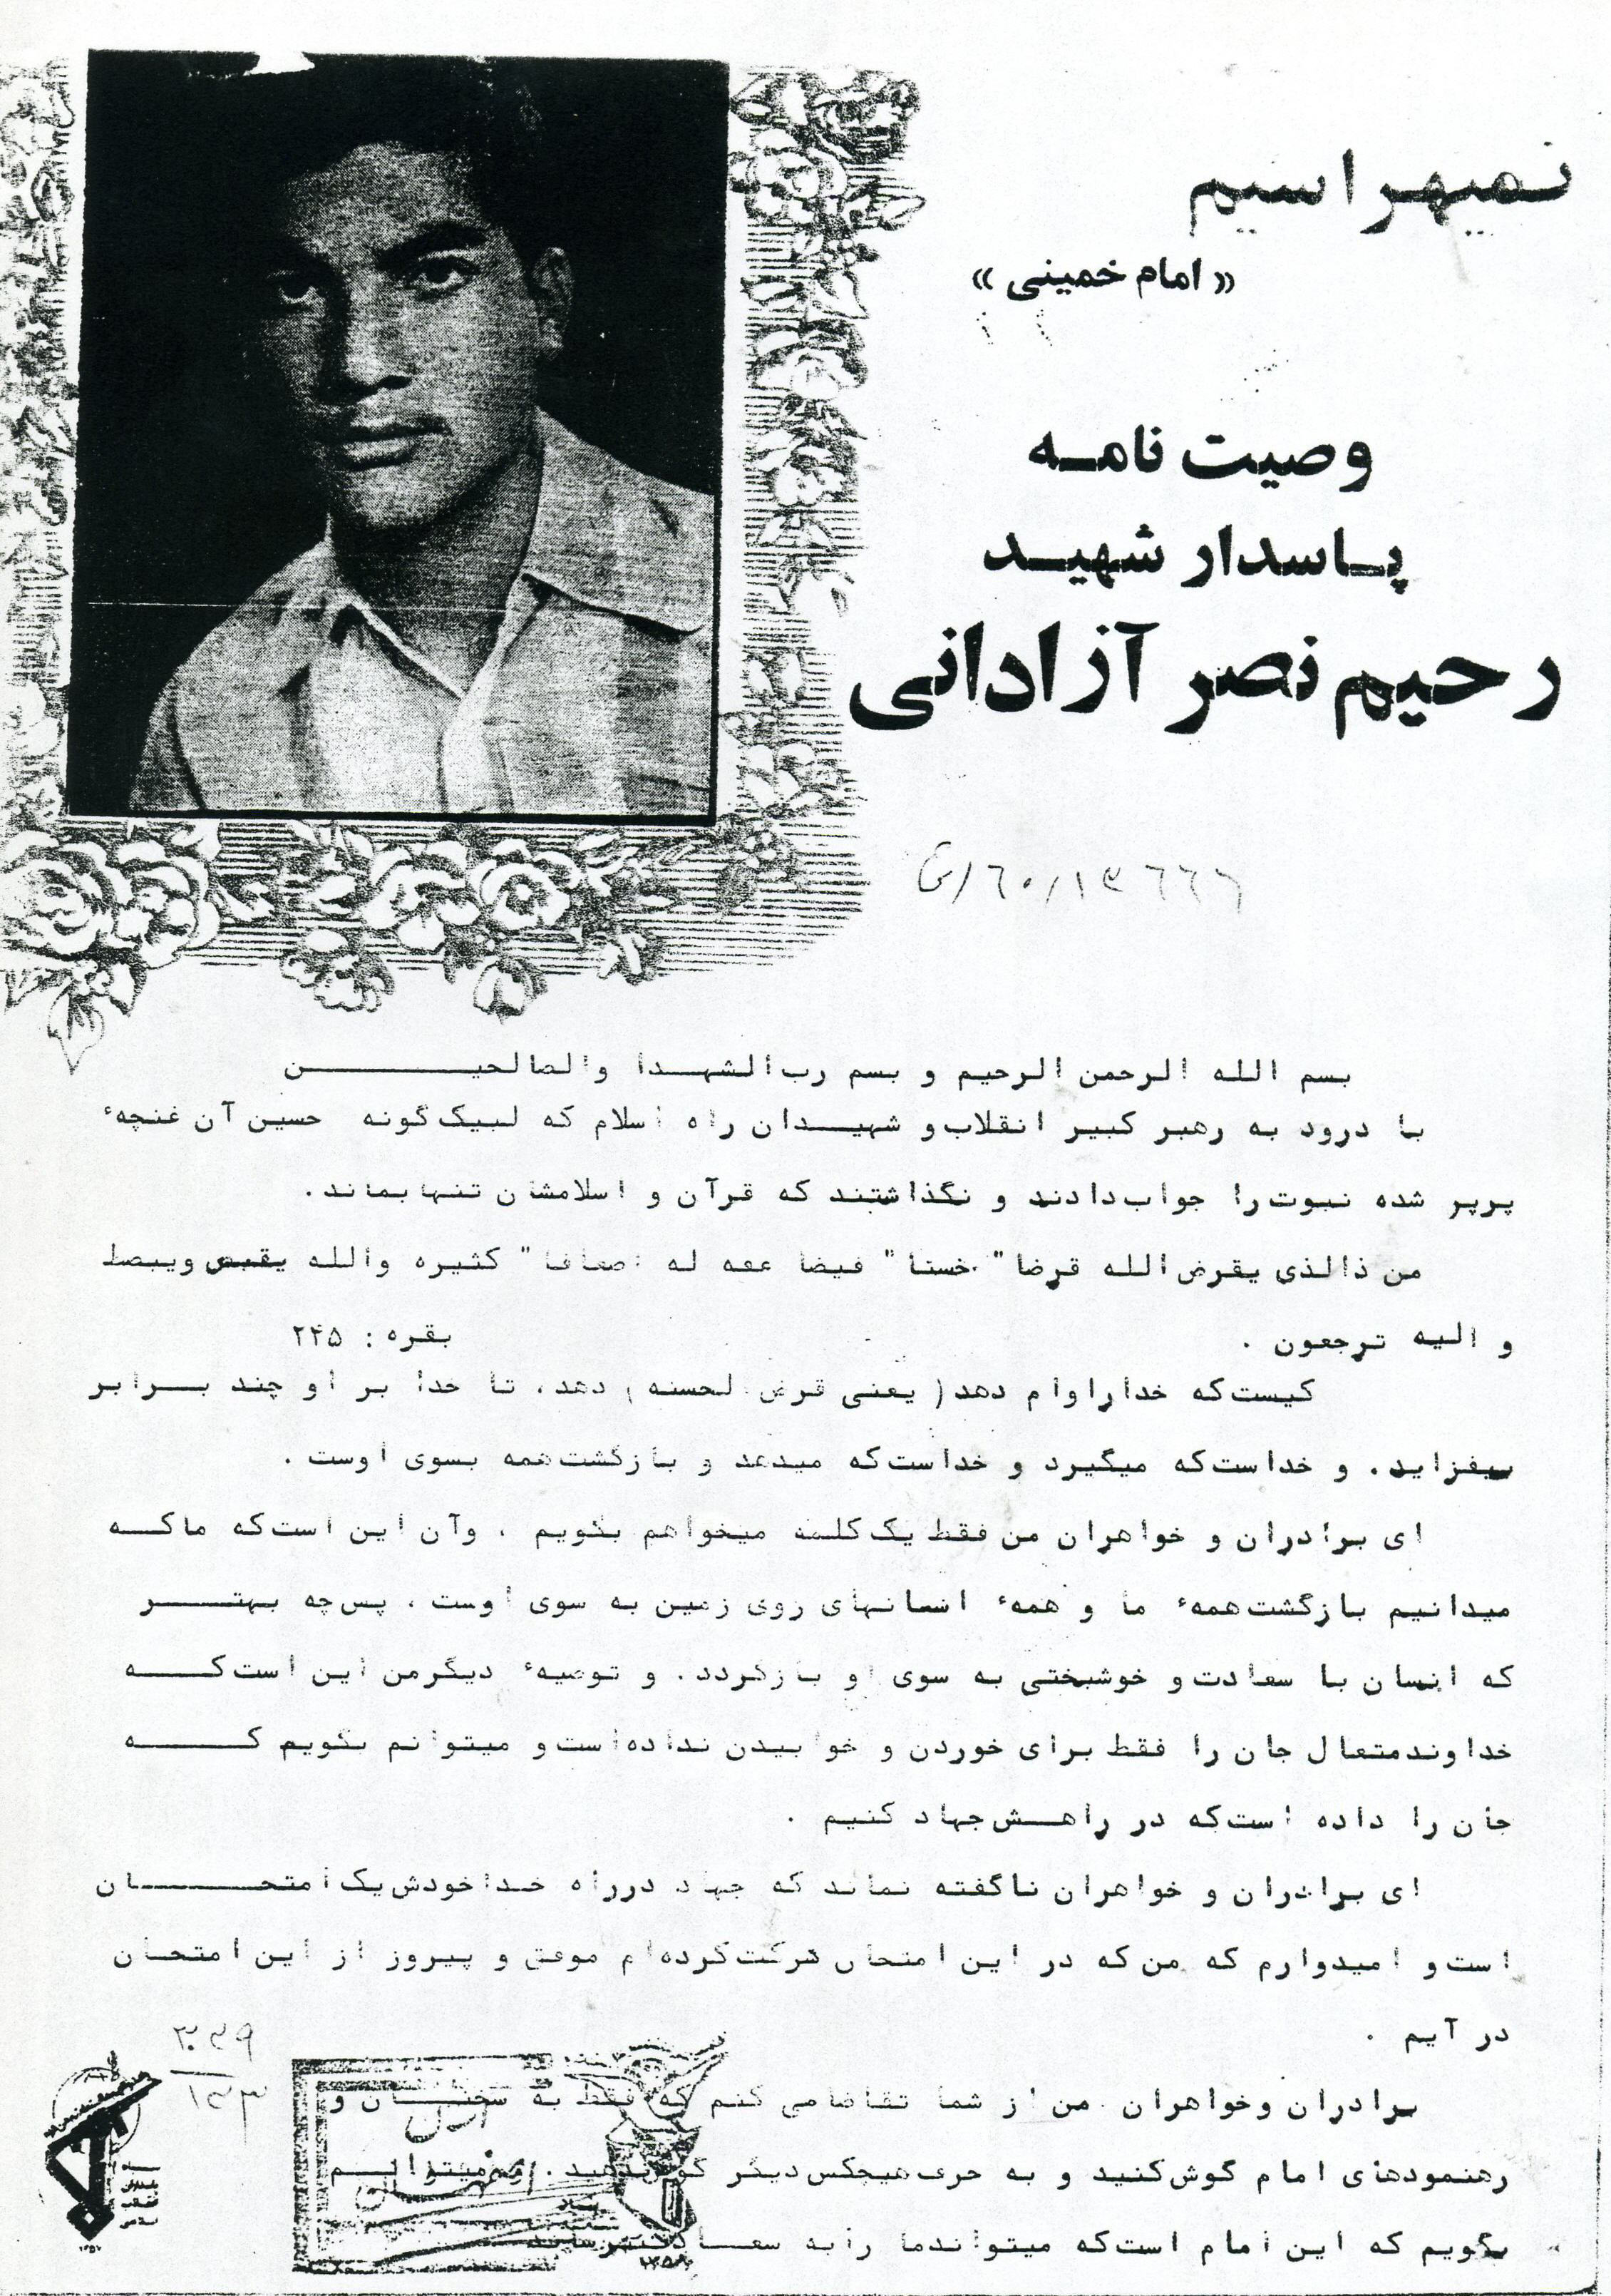 « امام خمینی »
وصیت نامه
پاسدار شهید
رحیم نصر آزادانی
بسم الله الرحمن الرحیم و بسم رب الشهدا والصالحین
با درود به رهبر کبیر انقلاب و شهیدان راه اسلام که لبیک گونه حسین آن غنچهٔ
پرپر شده نبوت را جواب دادند و نگذاشتند که قرآن و اسلامشان تنها بماند .
من ذالذی یقرض الله قرضا" خسنا" فیضا عفه له اضعافا" کثیره والله یقبض ویبصط
و الیه ترجعون . بقره : ۲۴۵
کیست که خدا را وام دهد ( یعنی قرض الحسنه ) دهد ، تا خدا بر او چند برابر
بیفزاید . و خداست که میگیرد و خداست که میدهد و بازگشت همه بسوی اوست .
ای برادران و خواهران من فقط یک کلمه میخواهم بگویم ، وآن این است که ما که
میدانیم بازگشت همهٔ ما و همهٔ انسانهای روی زمین به سوی اوست ، پس چه بهتر
که انسان با سعادت و خوشبختی به سوی او بازگردد . و توصیهٔ دیگر من این است که
خداوند متعال جان را فقط برای خوردن و خوابیدن نداده است و میتوانم بگویم که
جان را داده است که در راهش جهاد کنیم .
ای برادران و خواهران ناگفته نماند که جهاد در راه خدا خودش یک امتحان
است و امیدوارم که من که در این امتحان شرکت کرده ام موفق و پیروز از این امتحان
در آیم .
۳۰۳۹
۱۲۳
برادران وخواهران من از شما تقاضا می کنم که فقط به سخنان و
رهنمودهای امام گوش کنید و به حرف هیچکس دیگر گوش ندهید . و میتوانم
بگویم که این امام است که میتواند ما را به سعادت برساند
سپاه
پاسداران
انقلاب
اسلامی
۱۳۵۷